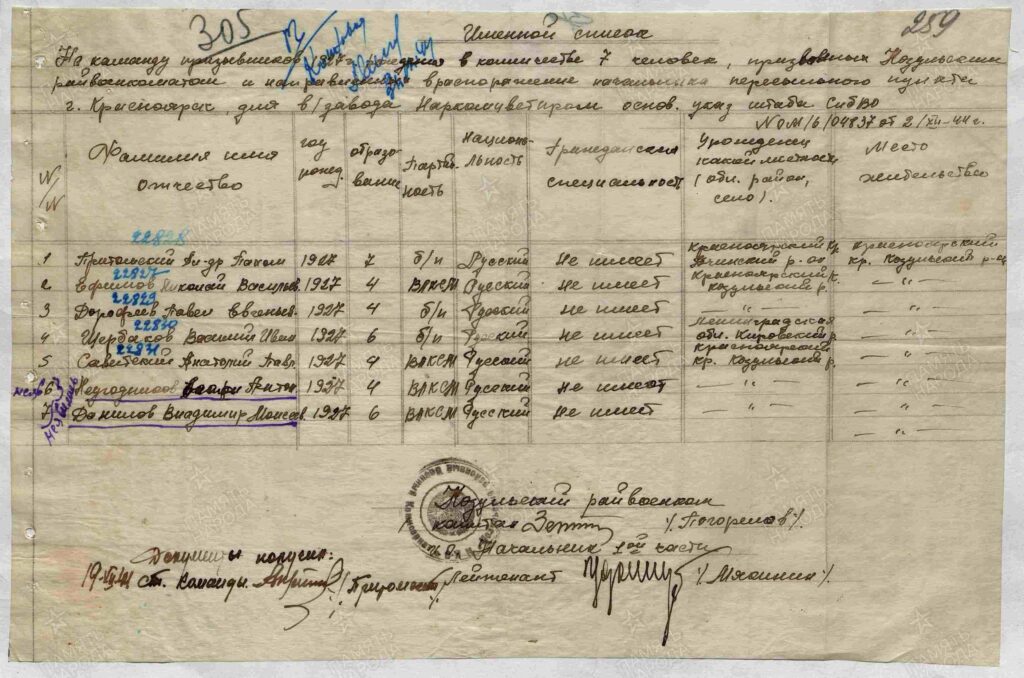 305
259
Именной список
На команду призывников 1927 г. рождения в количестве 7 человек, призванных Козульским
райвоенкоматом и направляемых в распоряжение начальника пересыльного пункта
г. Красноярск, для в/завода Наркомцветпром основ. указ штаба СибВО
№ ОМ/6/04837 от 2/XII-44 г.
N/N
Фамилия имя отчество
год рожд.
образование
Партийность
Национальность
Гражданская специальность
Урожденец какой местности (обл. район, село).
Место жительства
22828
1 Притольский Ал-др Пахом 1927 7 б/п Русский Не имеет Красноярский Кр. Ачинский р-он Красноярский кр. Козульский р-он
22827
2 Ефимов Николай Васильев 1927 4 ВЛКСМ Русский Не имеет Красноярский к. Козульский р. — " —
22829
3 Дорофеев Павел Евгеньев. 1927 4 б/п Русский Не имеет — " — — " —
22830
4 Щербаков Василий Иван 1927 6 б/п Русский не имеет Ленинградская обл. Кировский р. — " —
22831
5 Савитский Анатолий Павл. 1927 4 ВЛКСМ Русский Не имеет Красноярский кр. Козульский р. — " —
6 Негодников Антон. 1927 4 ВЛКСМ Русский Не имеет — " — — " —
7 Данилов Владимир Моисеев. 1927 6 ВЛКСМ Русский Не имеет — " — — " —
Козульский райвоенком
капитан /Погорелов/.
Начальник 1ой части
Лейтенант /Мясинин/.
Документы получил:
19-XII-44 ст. команды
ПАМЯТЬ НАРОДА